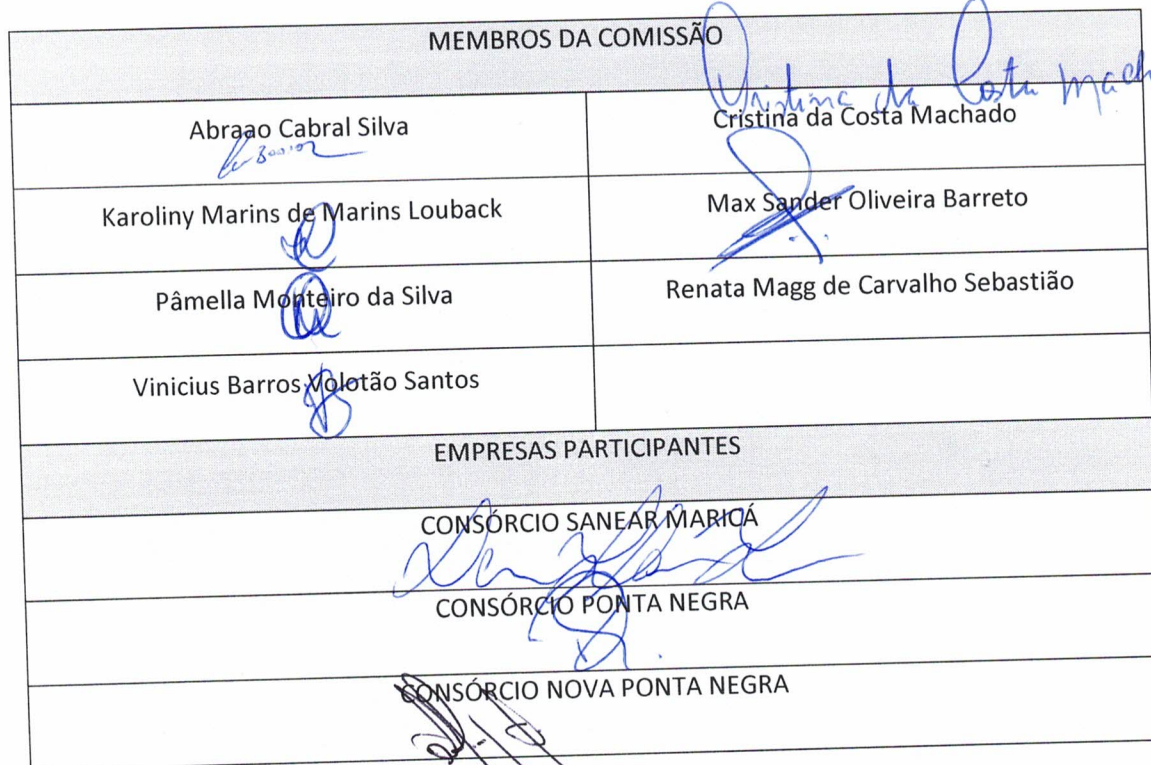 MEMBROS DA COMISSÃO
Cristina da Costa Mach
Abraao Cabral Silva
Cristina da Costa Machado
Karoliny Marins de Marins Louback
Max Sander Oliveira Barreto
Pâmella Monteiro da Silva
Renata Magg de Carvalho Sebastião
Vinicius Barros Volotão Santos
EMPRESAS PARTICIPANTES
CONSÓRCIO SANEAR MARICÁ
CONSÓRCIO PONTA NEGRA
CONSÓRCIO NOVA PONTA NEGRA